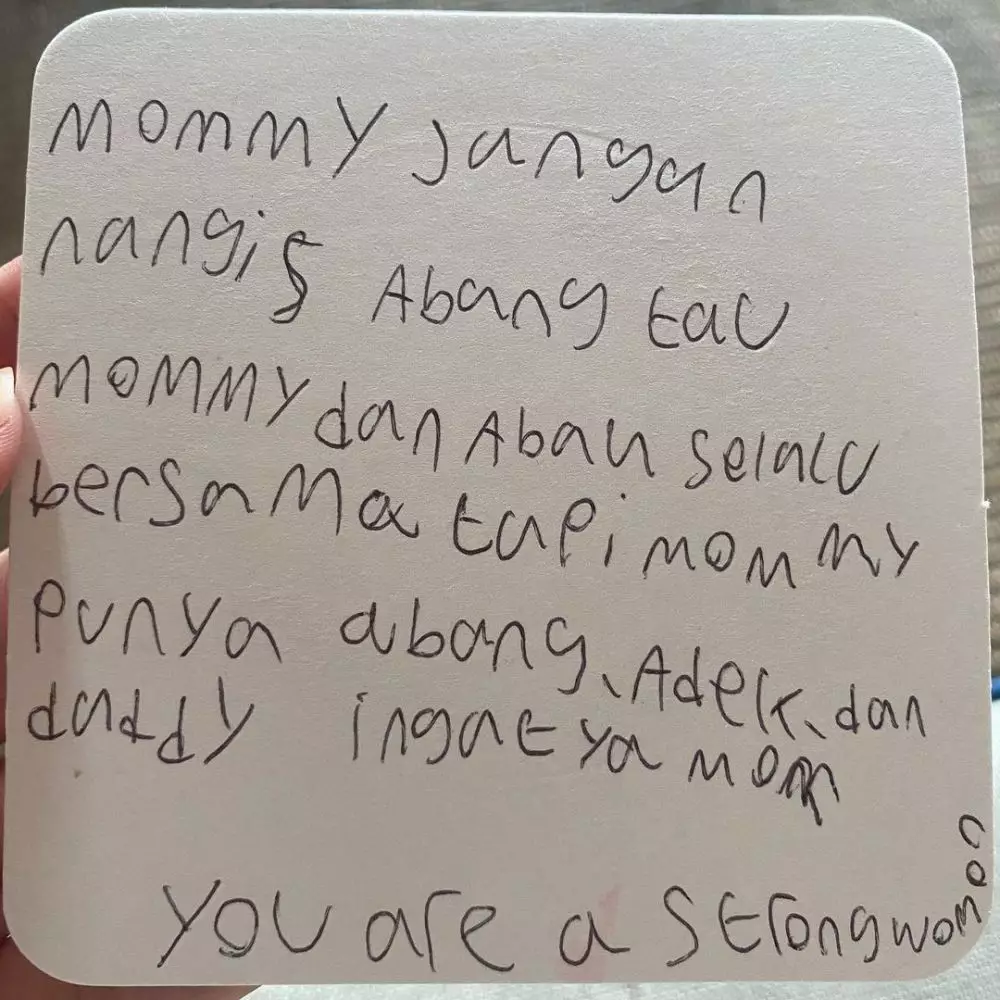 Mommy jangan
nangis Abang tau
Mommy dan Abah selalu
bersama tapi mommy
punya abang, Adek, dan
daddy ingat ya mom
you are a strong woman